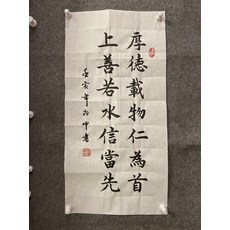 厚德載物仁為首
上善若水信當先
壬寅年
書